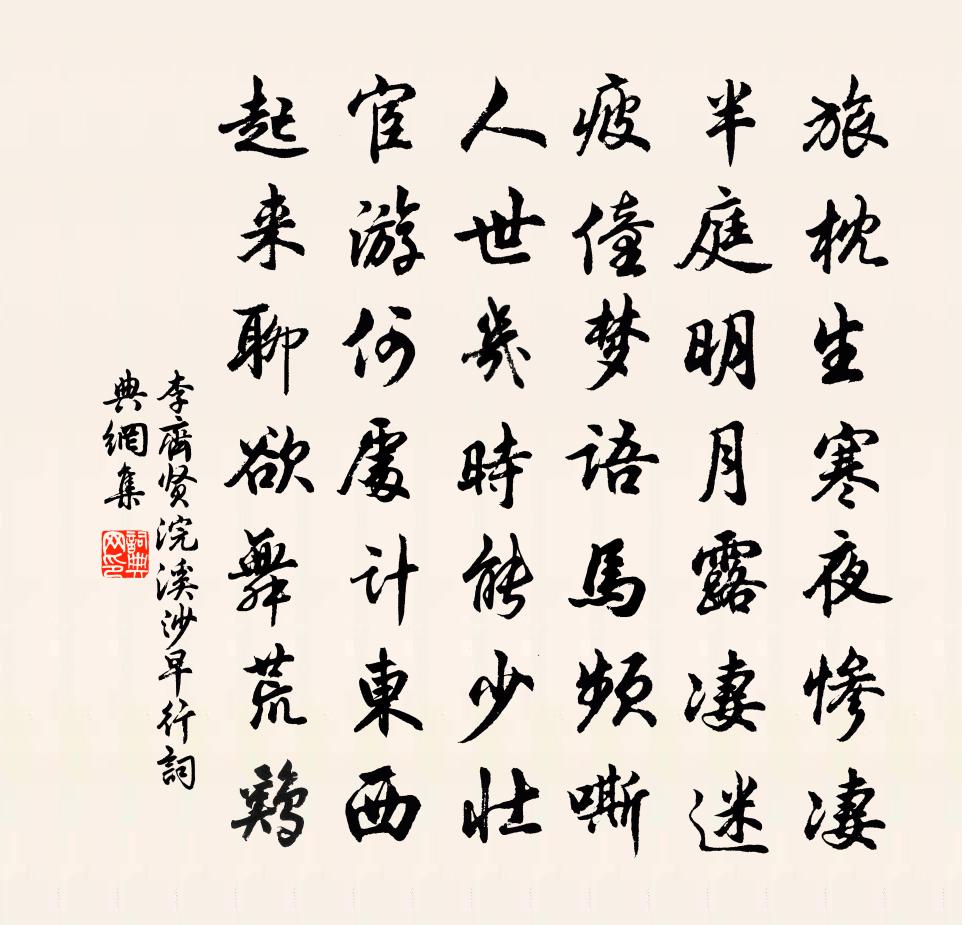 旅枕生寒夜惨凄
半庭明月露凄迷
疲僮梦语马频嘶
人世几时能少壮
宦游何处计东西
起来聊欲舞荒鸡
李齊贤浣溪沙早行詞
典網集
詞典网印